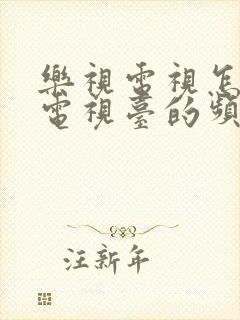 樂視電視怎
電視臺的頻
汪新年